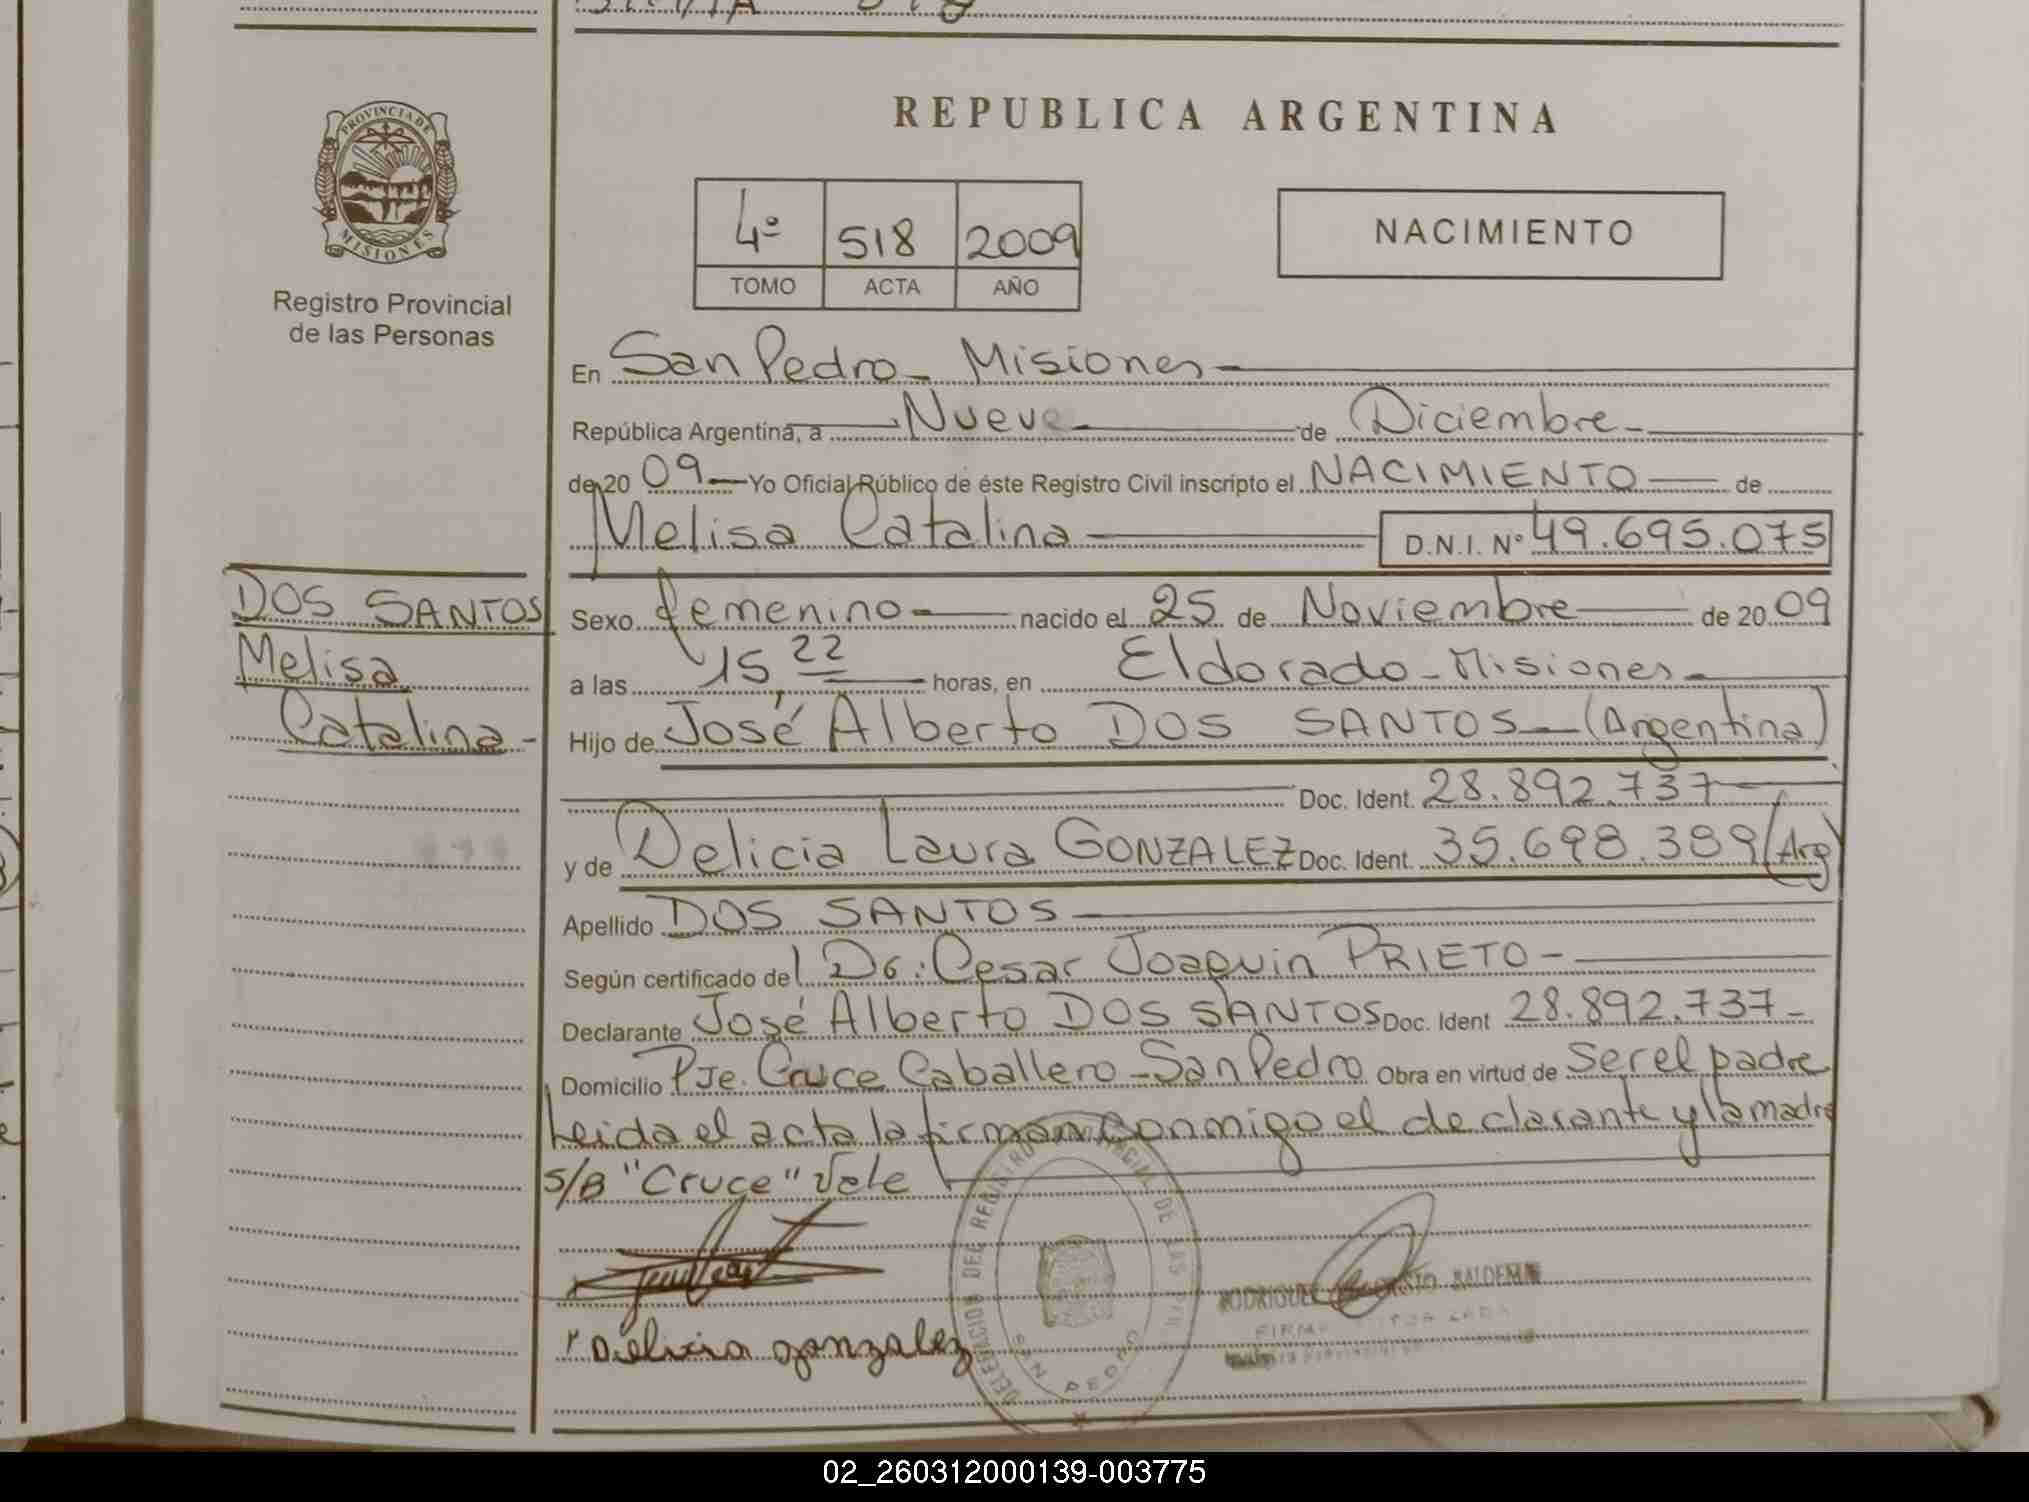 REPUBLICA ARGENTINA
PROVINCIA DE
MISIONES
Registro Provincial
de las Personas
4º 518 2009
TOMO ACTA AÑO
NACIMIENTO
En San Pedro - Misiones
República Argentina, a Nueve de Diciembre
de 20 09 Yo Oficial Público de éste Registro Civil inscripto el NACIMIENTO de
Melisa Catalina D.N.I. Nº 49.695.075
DOS SANTOS
Melisa
Catalina -
Sexo femenino nacido el 25 de Noviembre de 20 09
a las 15,22 horas, en Eldorado - Misiones
Hijo de José Alberto DOS SANTOS (Argentina)
Doc. Ident. 28.892.737
y de Delicia Laura GONZALEZ Doc. Ident. 35.698.389 (Arg)
Apellido DOS SANTOS
Según certificado del Dr: Cesar Joaquin PRIETO -
Declarante José Alberto DOS SANTOS Doc. Ident 28.892.737 -
Domicilio Pje. Cruce Caballero - San Pedro Obra en virtud de Ser el padre
Leida el acta la firman conmigo el declarante y la madre
S/B "Cruce" Vale
DELEGACION DEL REGISTRO PROVINCIAL DE LAS
SAN PEDRO
Delicia gonzalez
02_260312000139-003775